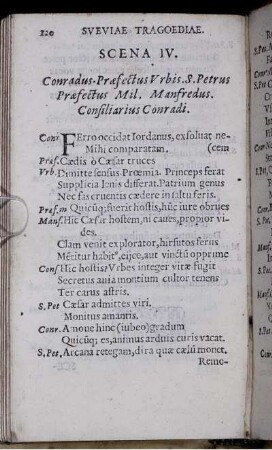 120 SVEVIAE TRAGOEDIAE.
SCENA IV.
Conradus. Præfectus Vrbis. S. Petrus
Præfectus Mil. Manfredus.
Consiliarius Conradi.
Conr FErro occidat Iordanus, exsoluat ne-
Mihi comparatam. (cem
Præf. Cædis ô Cæsar truces
Vrb. Dimitte sensus. Proemia. Princeps ferat
Supplicia lenis differat. Patrium genus
Nec fas cruentis cædere in saltu feris.
Præf. m Quicūq; fuerit hostis, hūc iure obrues
Manf. Hic Cæsar hostem, ni caues, propior vi-
des.
Clam venit explorator, hirsutos ferus
Méritur habit⁹, eijce, aut vinctū opprime
Conf Hic hostis? Vrbes integer vitæ fugit
Securus auia montium cultor tenens
Ter carus astris.
S. Pet Cæsar admittes viri.
Monitus amantis.
Conr. Amoue hinc (iubeo) gradum
Quicūq; es, animus arduis curis vacat.
S. Pet, Arcana retegam, dira quæ cælū monet.
Reme-